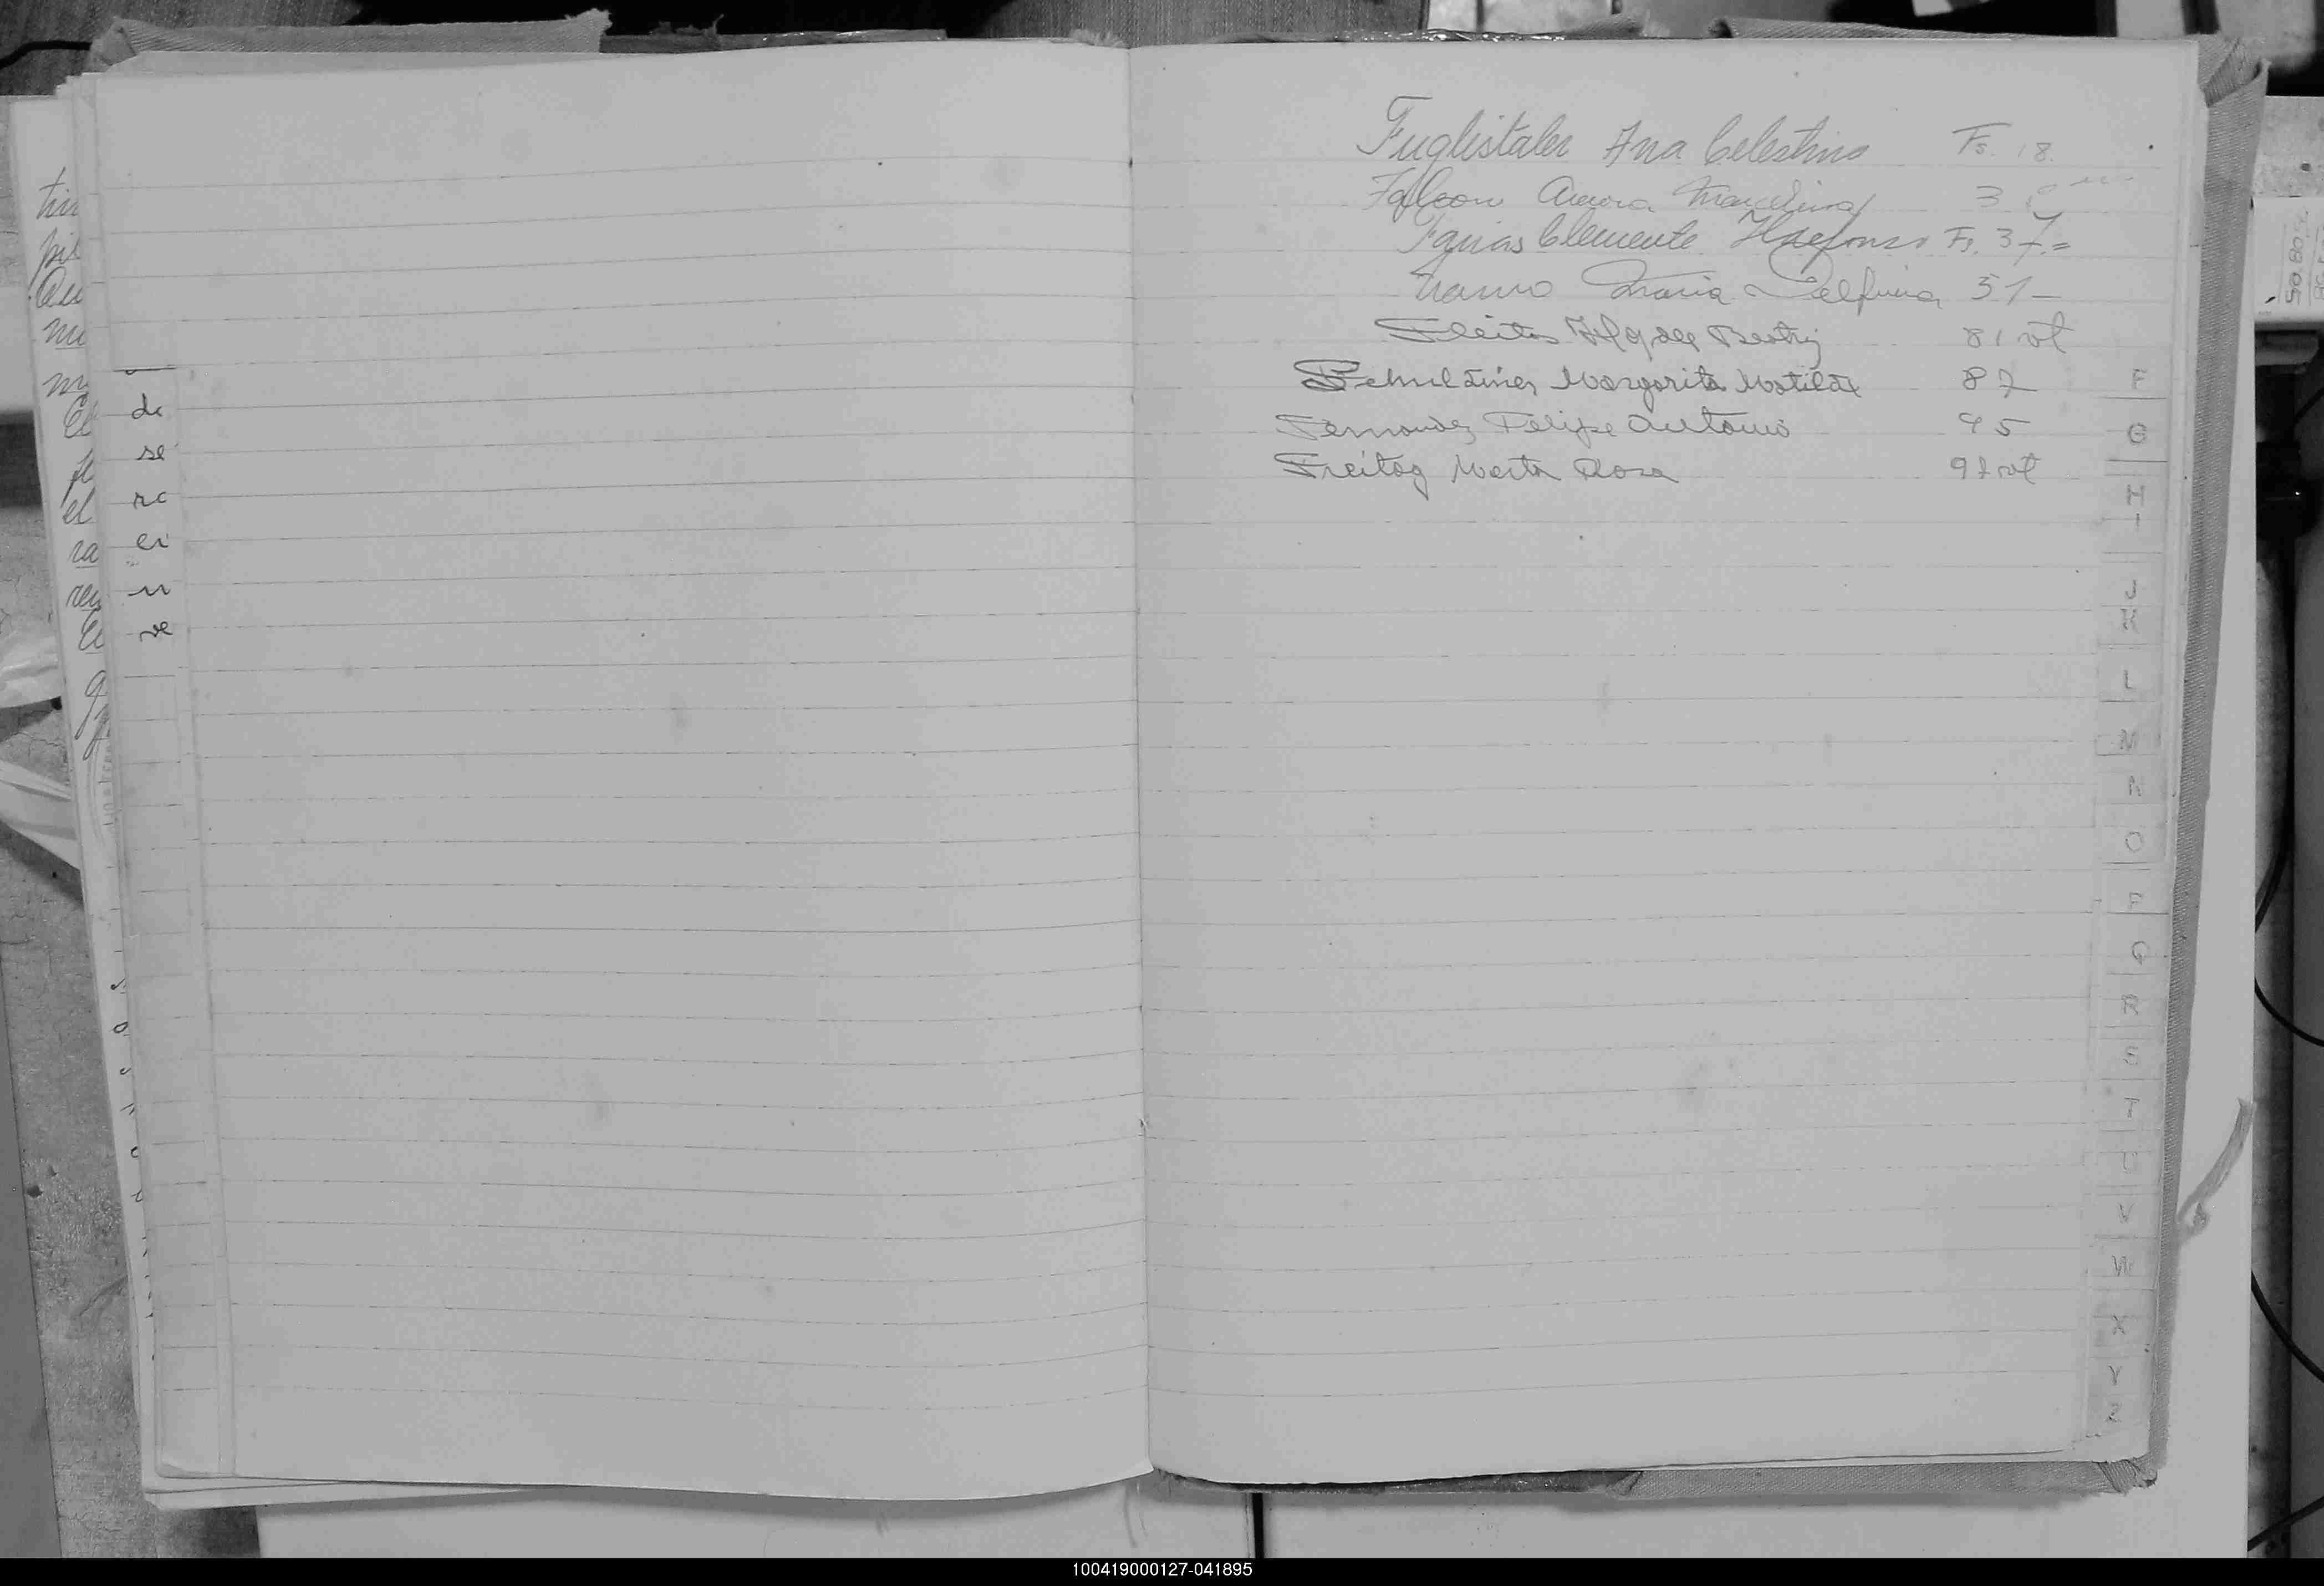 Fuglistaler Ana Celestina Fs. 18.
Falcon Aurora Marcelina 3
Farias Clemente Ildefonso Fs. 37.=
Maria Delfina 51-
Fleitas Beatriz 81 vt
Margarita Matilde 87
Fernandez Felipe Antonio 95
Freitag Marta Rosa 97 vt
F
G
H
I
J
K
L
M
N
O
P
Q
R
S
T
U
V
W
X
Y
Z
de
se
ra
en
ve
100419000127-041895